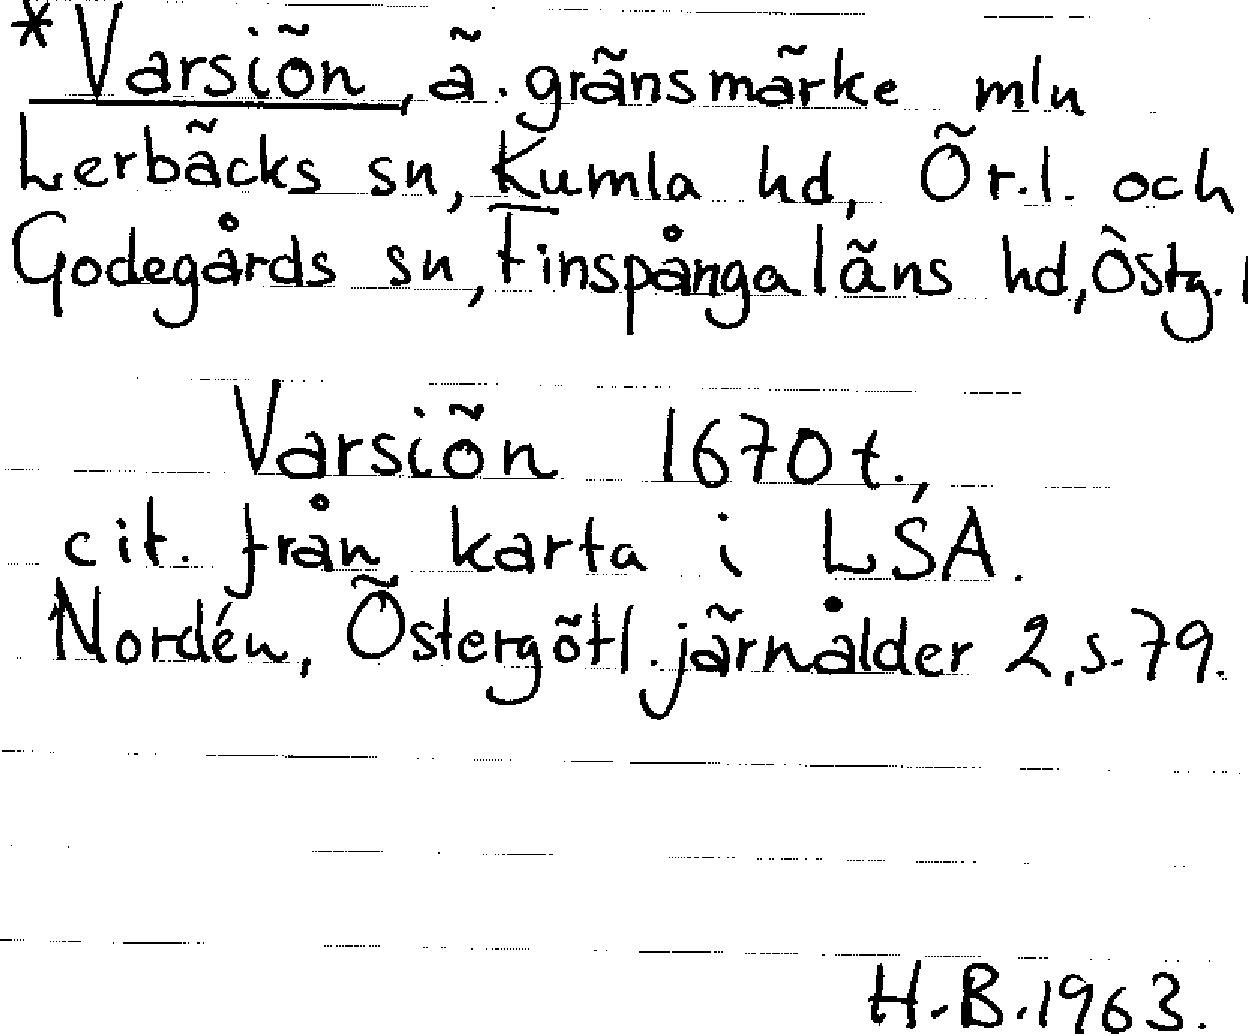 *Varsiön, ä. gränsmärke mln
Lerbäcks sn, Kumla hd, Ör.l. och
Godegårds sn, Finspånga läns hd, Östg. l
Varsiön 1670 t.,
cit. från karta i LSA.
Nordén, Östergötl. järnålder 2, s. 79.
H.B. 1963.